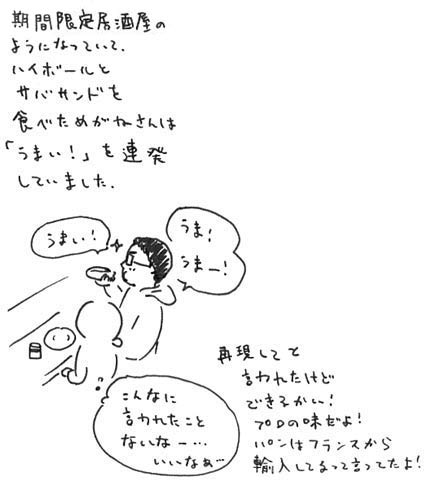 期間限定居酒屋の
ようになっていて.
ハイボールと
サバサンドを
食べためがねさんは
「うまい!」を連発
していました.
うまい!
うま!
うまー!
こんなに
言われたこと
ないなー…
いいなぁ…
再現してと
言われたけど
できるかい!
プロの味だよ!
パンはフランスから
輸入してるって言ってたよ!